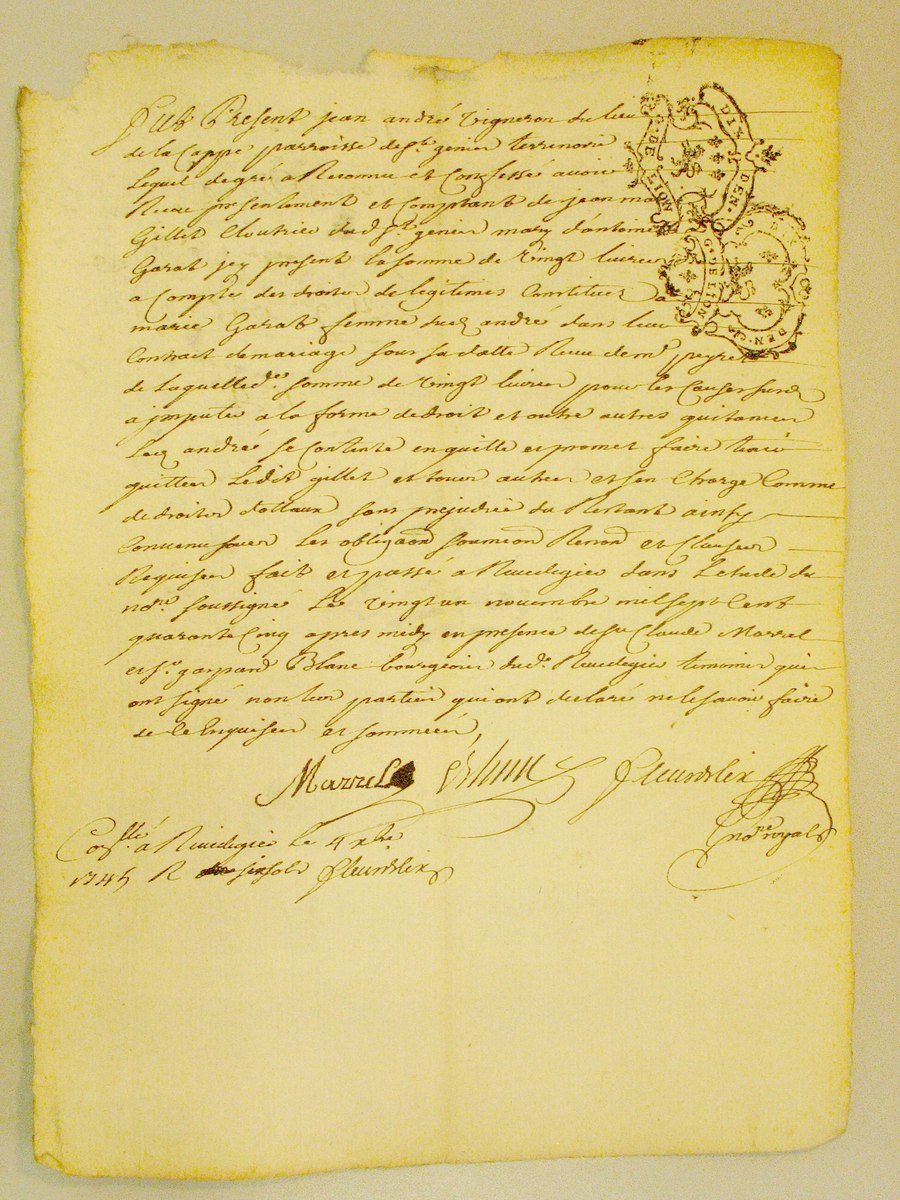 Fut Present jean andré vigneron du lieu
de la Cappe parroisse de st. genier terrenoire
Lequel de gré a Reconnu et Confessé avoir
Receu presentement et Comptant de jean ma
Gillet Cloutrier dud st. genier mary d'antoine
Garat jcy present la somme de vingt livres
a Compte des droits de legitimes Constitués a
marie Garat femme dud andré dans leur
Contract de mariage sous sa datte Receu de me. peyre
de laquelle de. somme de vingt livres pour les Causes susd
a jmputer a la forme de droit et outre autres quitances
Led andré se Contente en quitte et promet faire tenir
quitte Ledit gillet et tous autres et s'en Charge Comme
de droits dottaux sans prejudice du Restant ainsy
Convenu sous les obligaon soumeon Renon et Clauses
Requises fait et passé a Rivedegier dans Letude du
nore. soussigné Le vingt un novembre mil sept Cent
quarante Cinq apres midy en presence de sr Claude Marrel
et sr. gaspard Blanc bourgeois dud. Rivedegier temoins qui
ont signé non les parties qui ont declaré ne le savoir faire
de ce Enquises et sommées,
Marrel Blanc Fleurdelix
nore. royal
Collé. á Rivedegier Le 4 xbre.
1745 R six sols Fleurdelix
G. DE LION
DIX DEN.
G. DE LION
DIX DEN.